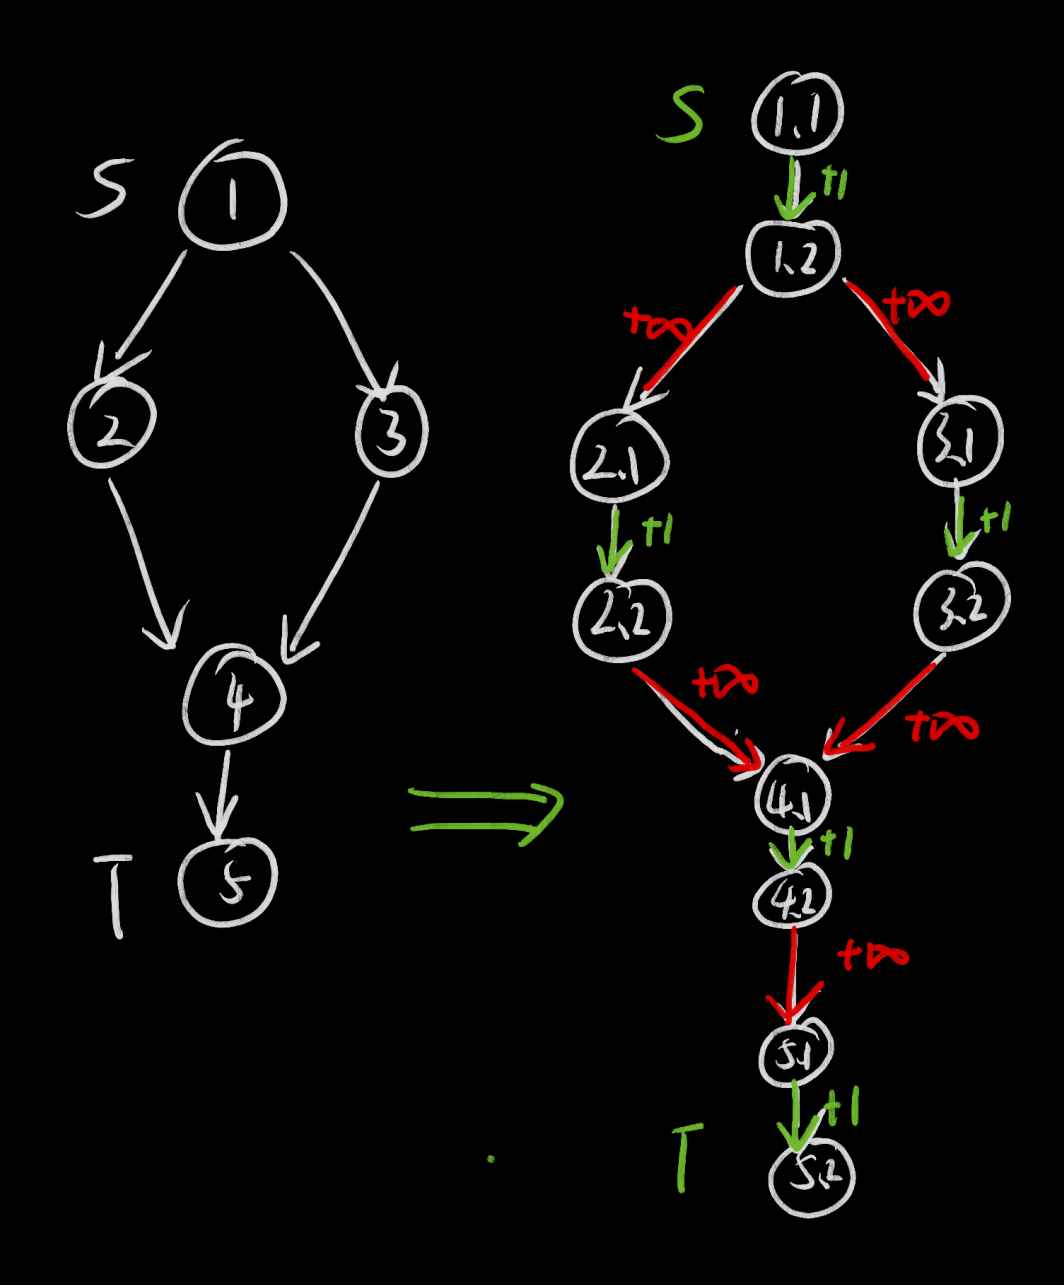 S
1
2
3
4
T
5
S
1.1
+1
1.2
+∞
+∞
2.1
3.1
+1
+1
2.2
3.2
+∞
+∞
4.1
+1
4.2
+∞
5.1
+1
T
5.2